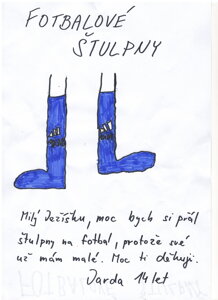 FOTBALOVÉ
ŠTULPNY
Milý Ježíšku, moc bych si přál
štulpny na fotbal, protože své
už mám malé. Moc ti děkuji.
Jarda 14 let